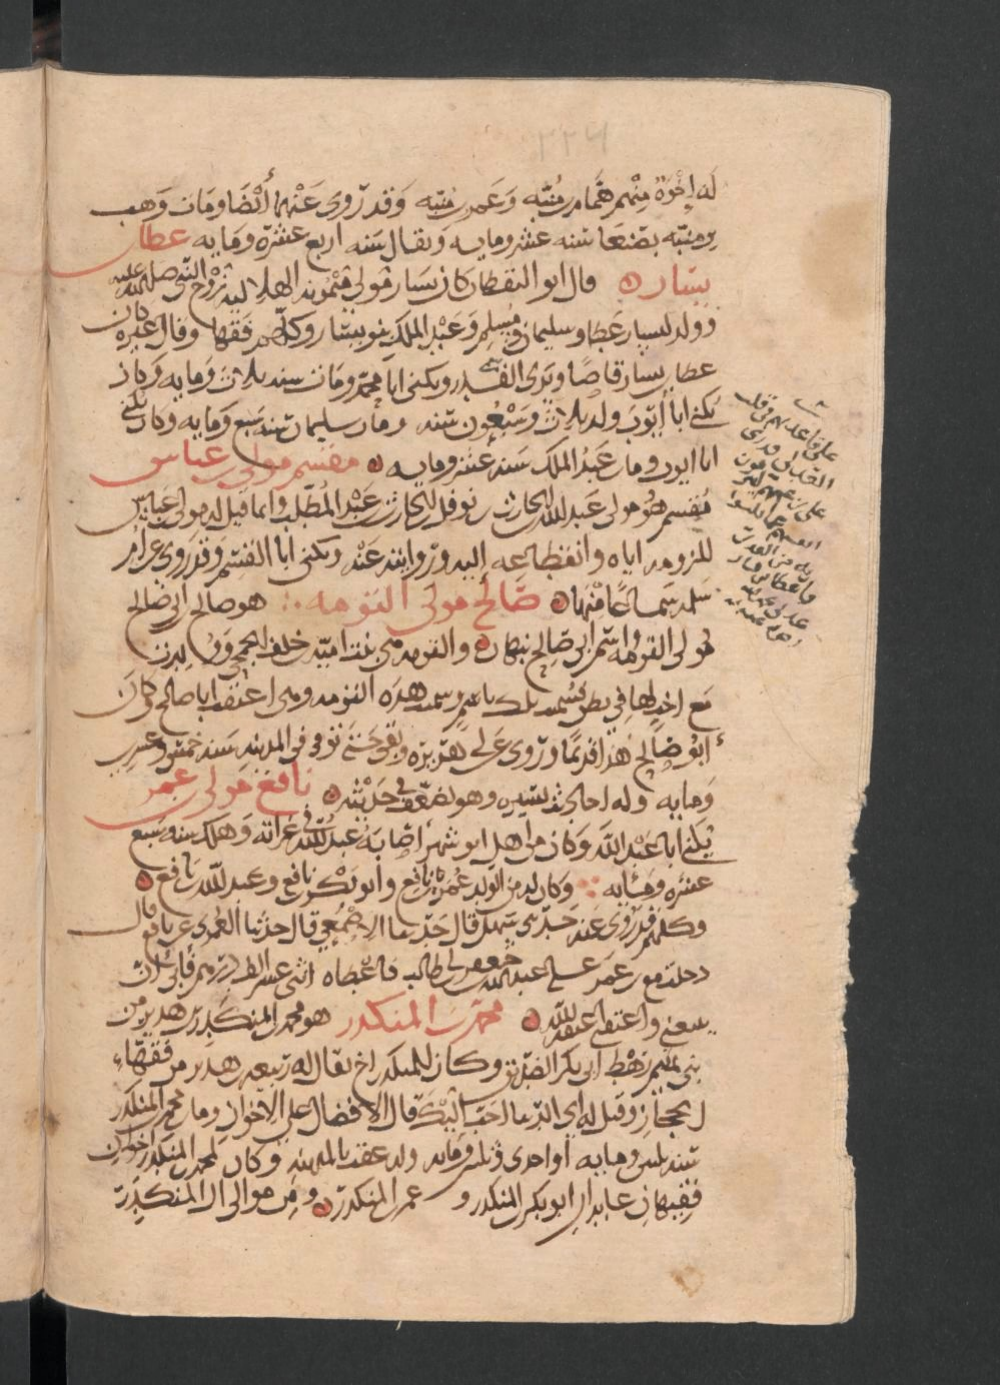 ٢٢٦
له إخوة منهم همام بن منبه وعمر بن منبه وقد روى عنهما أيضا ومات وهب
بن منبه بصنعا سنه عشر ومايه ويقال سنه اربع عشرة ومايه عطا بن
يسار قال ابو اليقظان كان يسار مولى ميمونه الهلاليه زوج النبي صلى الله عليه
وولد ليسار عطا وسليمان ومسلم وعبد الملك بنو يسار وكلهم فقها وقال غيره كان
عطا بن يسار قاصا ويرى القدر ويكنى ابا محمد ومات سنه ثلاث ومايه وكان
يكنى ابا ايوب ولد ثلاث وسبعون سنه ومات سليمان سنه سبع ومايه وكان يكنى
ابا ايوب ومات عبد الملك سنه عشر ومايه مقسم مولى عباس
مقسم هو مولى عبد الله بن الحارث بن نوفل بن الحارث بن عبد المطلب وانما قيل له مولى عباس
للزومه اياه وانقطاعه إليه وروايته عنه ويكنى ابا القسم وقد روى عن ام
سلمه سماعا منها صالح مولى التومه هو صالح بن ابي صالح
مولى التومه واسم ابي صالح نبهان والتومه هي بنت اميه بن خلف الجمحي
مع اخت لها في بطن فسميت تلك باسم وسميت هذه التومه وهي اعتقت ابا صالح وكان
ابو صالح هذا قديما وروى عن ابي هريره وبقي حتى توفي في المدينه سنه خمس وعشرين
ومايه وله احاديث يسيره وهو يضعف في حديثه نافع مولى بن عمر
يكنى ابا عبد الله وكان من اهل ابرشهر اصابه عبد الله في غزاته وهلك سنه سبع
عشره ومايه وكان له من الولد عمر بن نافع وابو بكر بن نافع وعبد الله بن نافع
وكلهم قد روى عنه حدثني سهل قال حدثنا الاصمعي قال حدثنا العمري عن نافع قال
دخلت مع بن عمر على عبد الله بن جعفر بن ابي طالب فاعطاه اثني عشر الف درهم فابى ان
يبيعني واعتقني اعتقه الله محمد بن المنكدر هو محمد بن المنكدر بن هدير من
بني تيم رهط ابي بكر الصديق وكان للمنكدر اخ يقال له ربيعه بن هدير من فقهاء
الحجاز وقيل له اي الدنيا احب اليك قال الافضال على الاخوان ومات محمد بن المنكدر
سنه ثلثين ومايه أو احدى وثلثين ومايه وله عقب بالمدينه وكان لمحمد بن المنكدر اخوان
فقيهان عابدان ابو بكر بن المنكدر وعمر بن المنكدر ومن موالي ال المنكدر